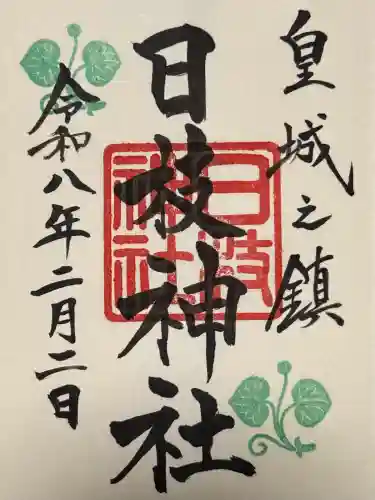 皇城之鎮
日枝神社
日枝神社
令和八年二月二日